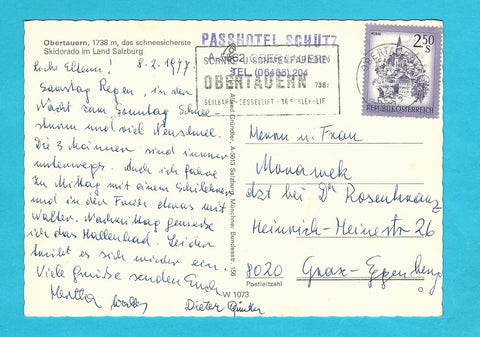 Obertauern, 1738 m, das schneesicherste
Skidorado im Land Salzburg
8.2.1977.
Liebe Eltern!
Samstag Regen, in der
Nacht zum Sonntag Schnee-
sturm und viel Neuschnee.
Die 3 Männer sind immer
unterwegs. Auch ich fahre
zu Mittag mit einem Schilehrer
und in der Früh etwas mit
Walter. Nachmittag genieße
ich das Hallenbad. Leider
schneibt es sich wieder ein.
Viele Grüße senden Euch
Hertha Walter Dieter Günter
Alfred Gründler, A-5013 Salzburg, Münchner Bundesstr. 159
W 1073
PASSHOTEL SCHÜTZ
A-5562 OBERTAUERN
TEL. (06456) 204
OBERTAUERN
SEILBAHN SESSELLIFT 16 SCHLEPPLIFTE
2.50
S
REPUBLIK ÖSTERREICH
Herrn u. Frau
Morawek
dzt bei Dr Rosenkranz
Heinrich-Heinestr 26
8020 Graz-Eggenberg
Postleitzahl